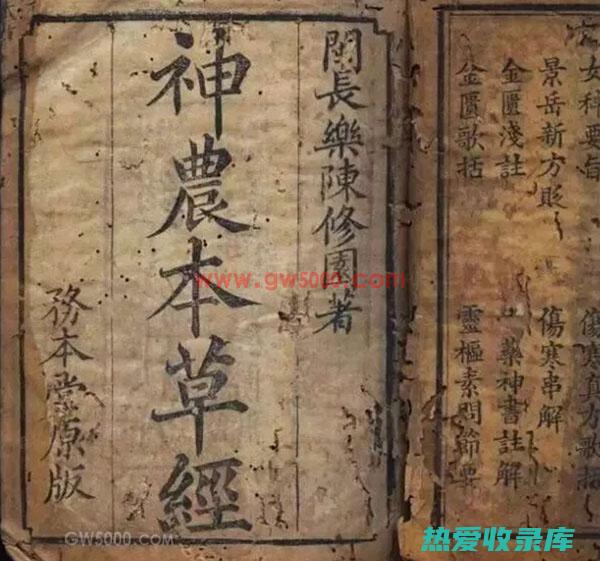 女科要旨
傷寒真方歌括
景岳新方貶
傷寒串解
金匱淺註
藥神書註解
金匱歌括
靈樞素問節要
閩長樂陳修園著
神農本草經
務本堂原版
www.gw5000.com
GW5000.COM
热爱收录库